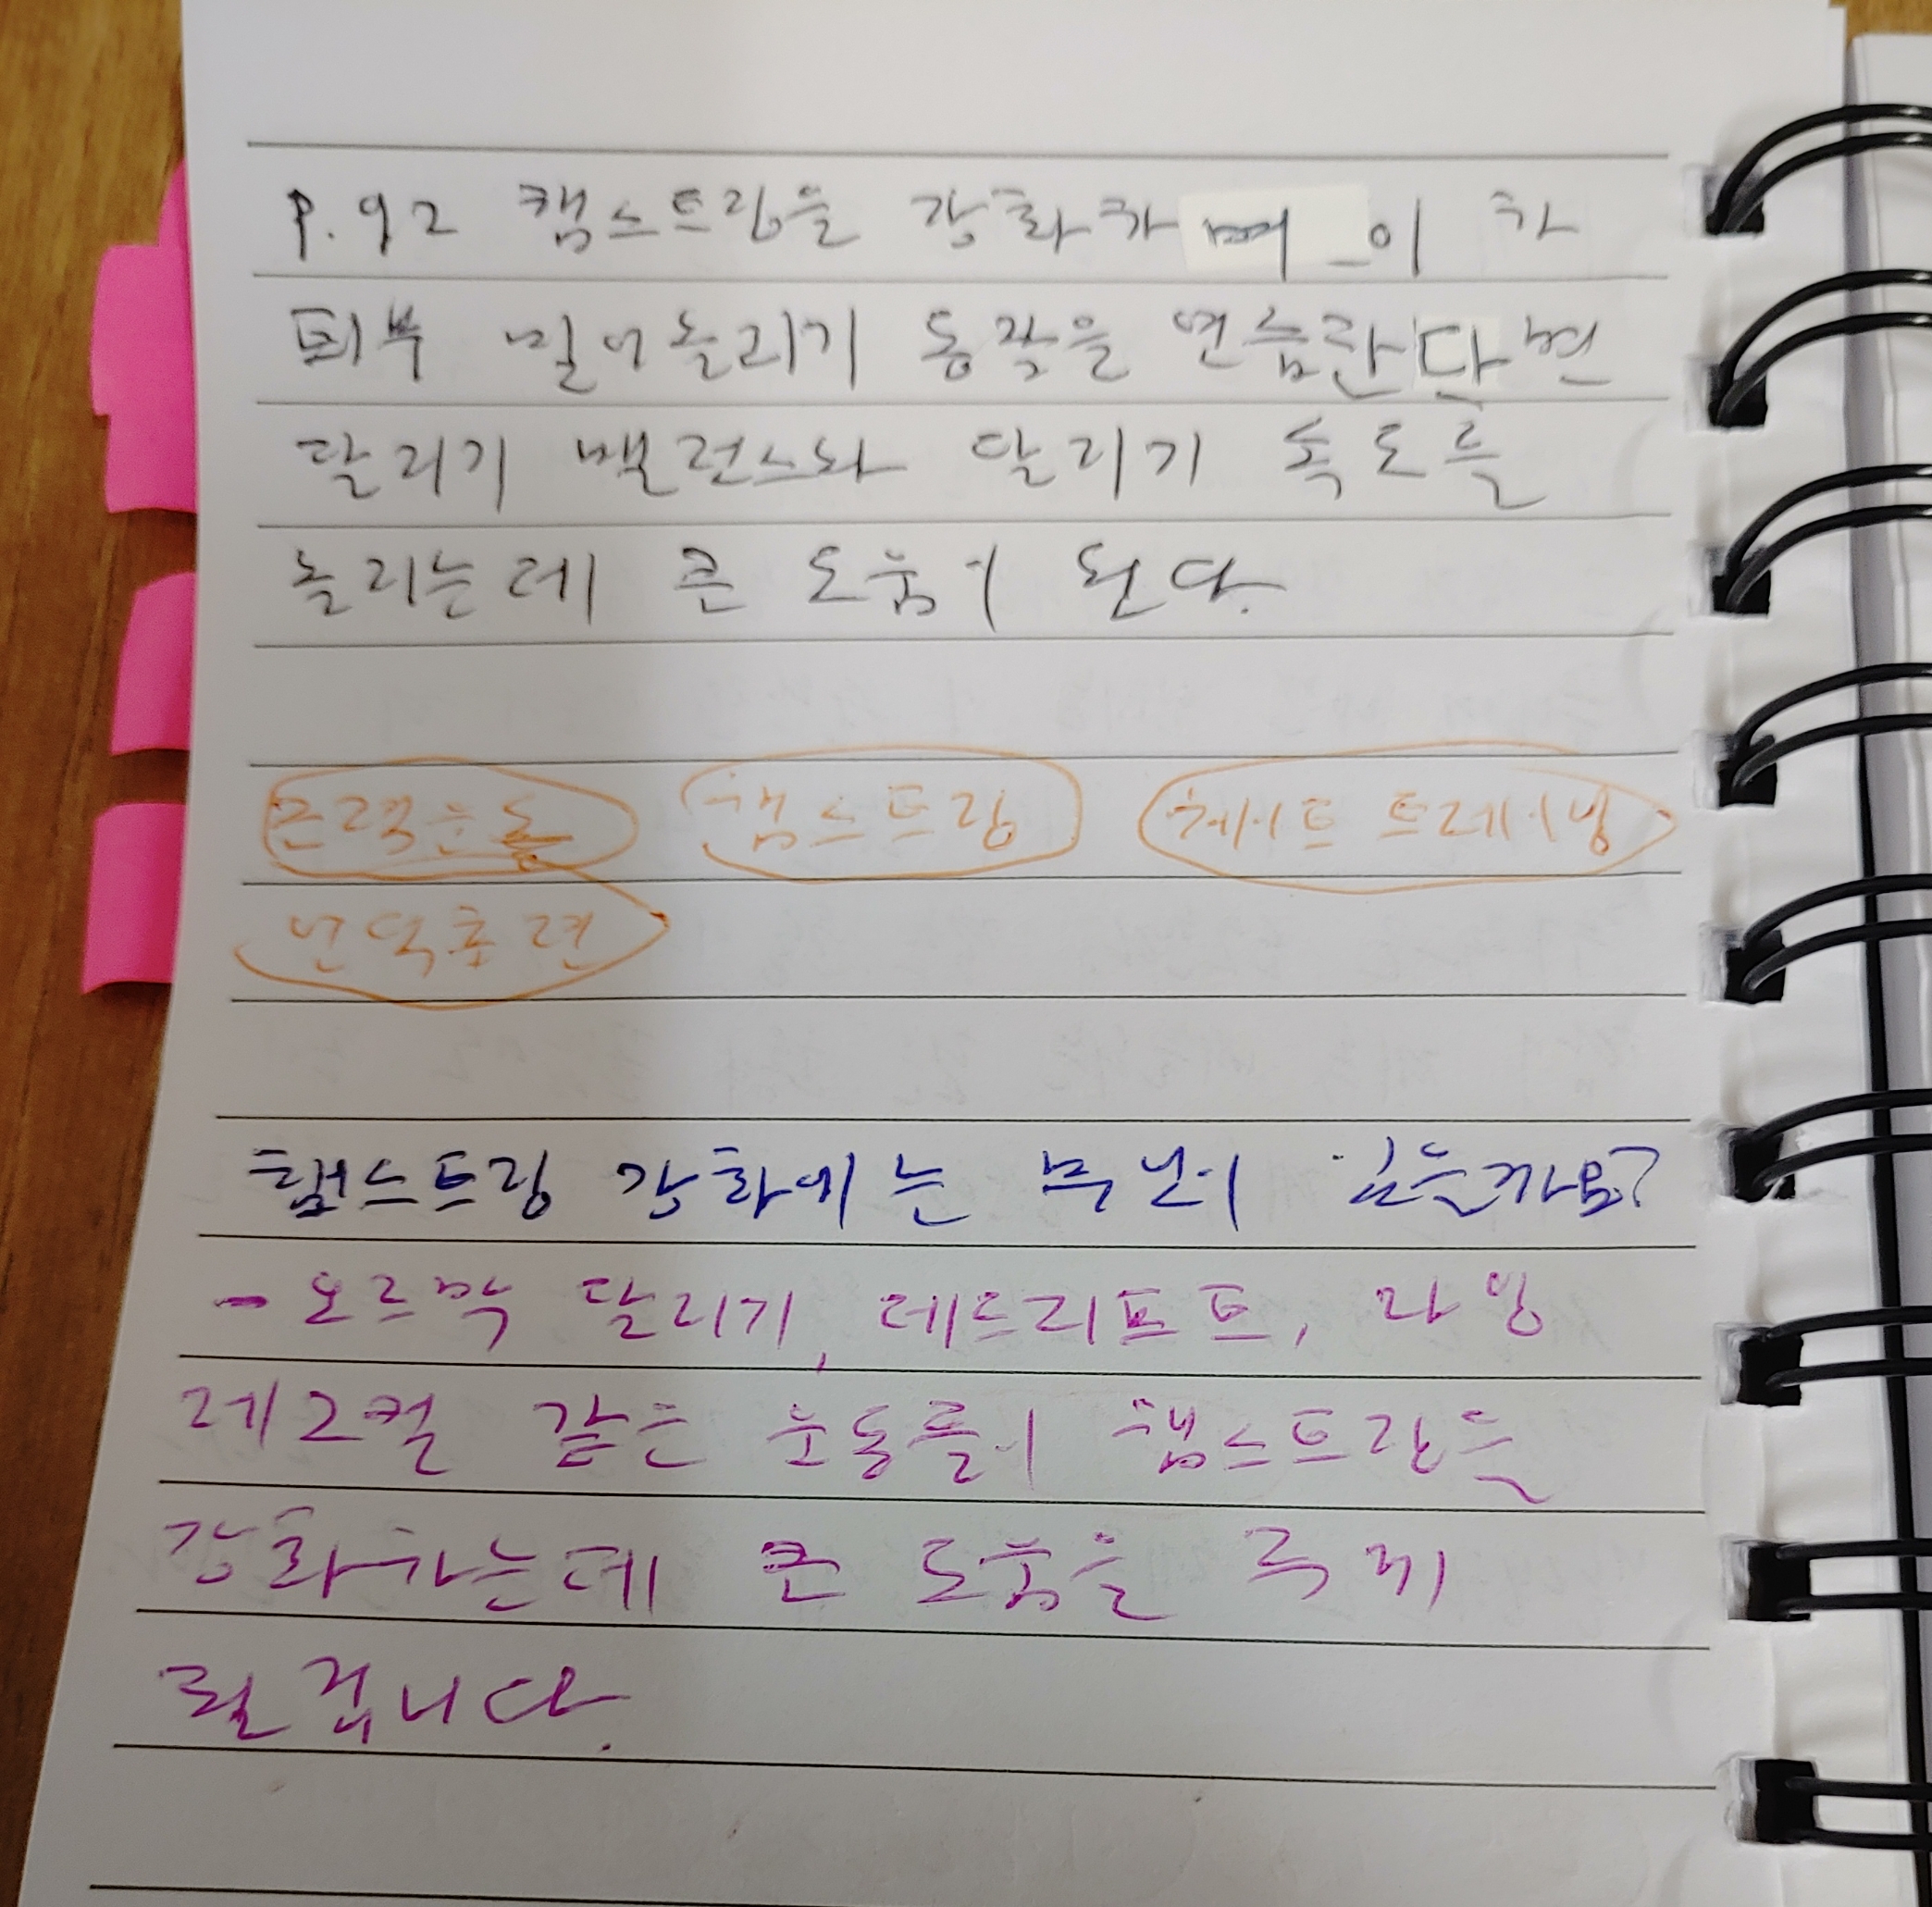 P.92 햄스트링을 강화하며 이 하
퇴부 밀어올리기 동작을 연습한다면
달리기 밸런스와 달리기 속도를
올리는데 큰 도움이 된다.
근력운동 햄스트링 웨이트 트레이닝
언덕훈련
햄스트링 강화에는 무엇이 있을까요?
- 오르막 달리기, 데드리프트, 라잉
레그컬 같은 운동들이 햄스트링을
강화하는데 큰 도움을 주게
될겁니다.